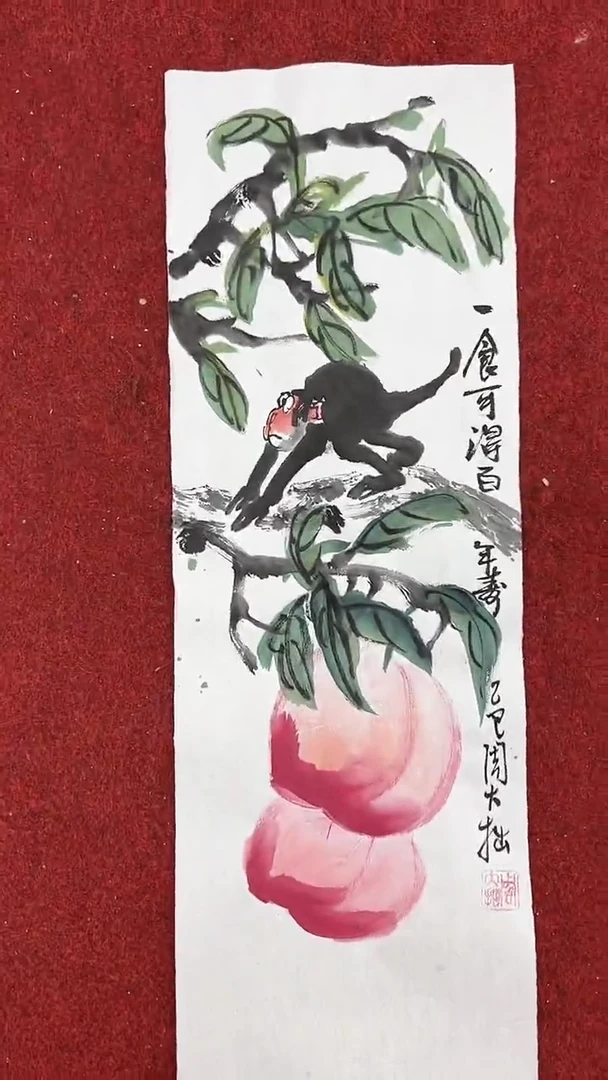 一食可得百年寿
乙巳周大拙